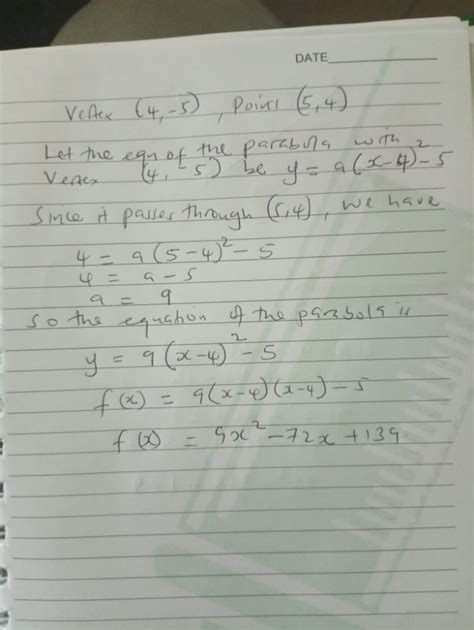 DATE
Vertex (4,-5), Points (5,4)
Let the eqn of the parabola with
Vertex (4, -5) be y = a(x-4)²-5
Since it passes through (5,4), we have
4 = a(5-4)²-5
4 = a-5
a = 9
so the equation of the parabola is
y = 9(x-4)²-5
f(x) = 9(x-4)(x-4)-5
f(x) = 9x²-72x+139